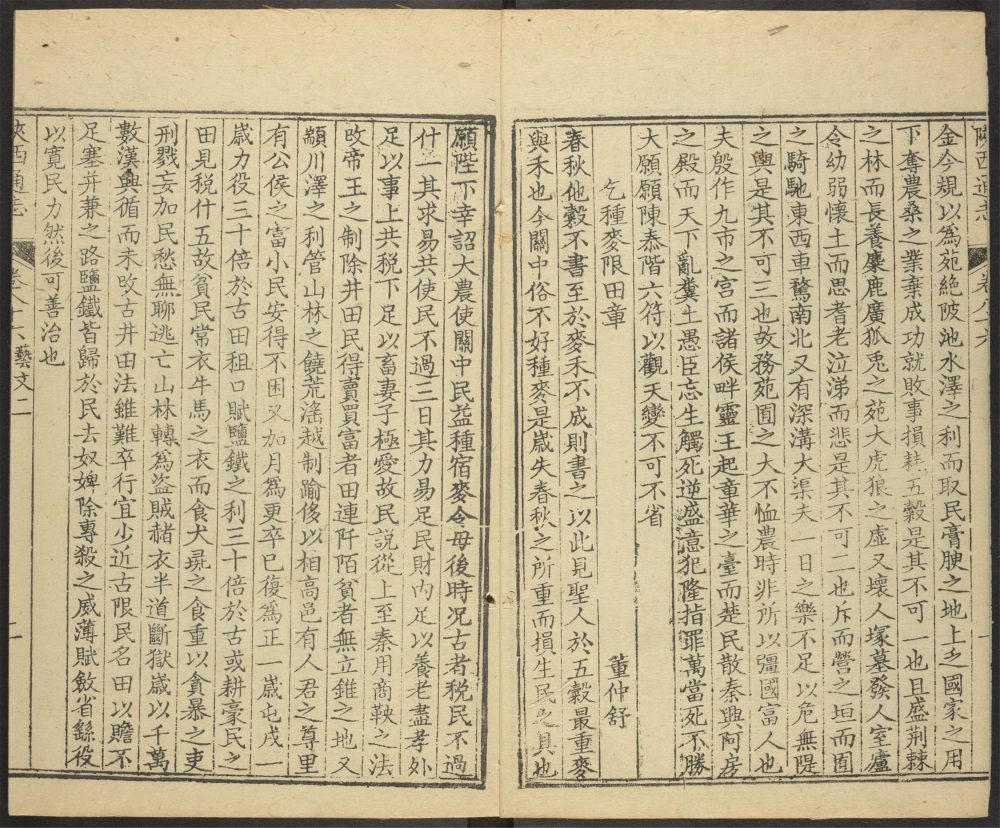 陝西通志 卷八十六
金今規以為苑絶陂池水澤之利而取民膏腴之地上乏國家之用
下奪農桑之業棄成功就敗事損耗五穀是其不可一也且盛荆棘
之林而長養麋鹿廣狐兎之苑大虎狼之虚又壞人塚墓發人室廬
令幼弱懷土而思耆老泣涕而悲是其不可二也斥而營之垣而囿
之騎馳東西車騖南北又有深溝大渠夫一日之樂不足以危無隄
之輿是其不可三也故務苑囿之大不恤農時非所以彊國富人也
夫殷作九市之宫而諸侯畔靈王起章華之臺而楚民散秦興阿房
之殿而天下亂糞土愚臣忘生觸死逆盛意犯隆指罪萬當死不勝
大願願陳泰階六符以觀天變不可不省
乞種麥限田章
董仲舒
春秋他糓不書至於麥禾不成則書之以此見聖人於五穀最重麥
與禾也今關中俗不好種麥是嵗失春秋之所重而損生民之具也
願陛下幸詔大農使關中民益種宿麥令毋後時况古者税民不過
什一其求易共使民不過三日其力易足民財内足以養老盡孝外
足以事上共税下足以畜妻子極愛故民説從上至秦用商鞅之法
攺帝王之制除井田民得賣買富者田連阡陌貧者無立錐之地又
顓川澤之利管山林之饒荒淫越制踰侈以相高邑有人君之尊里
有公侯之富小民安得不困又加月為更卒已復為正一嵗屯戍一
嵗力役三十倍於古田租口賦鹽鐵之利三十倍於古或耕豪民之
田見税什五故貧民常衣牛馬之衣而食犬彘之食重以貪暴之吏
刑戮妄加民愁無聊逃亡山林轉為盗賊赭衣半道斷獄嵗以千萬
數漢興循而未攺古井田法雖難卒行宜少近古限民名田以贍不
足塞并兼之路鹽鐵皆歸於民去奴婢除專殺之威薄賦斂省繇役
以寛民力然後可善治也
陝西通志 卷八十六藝文二 二